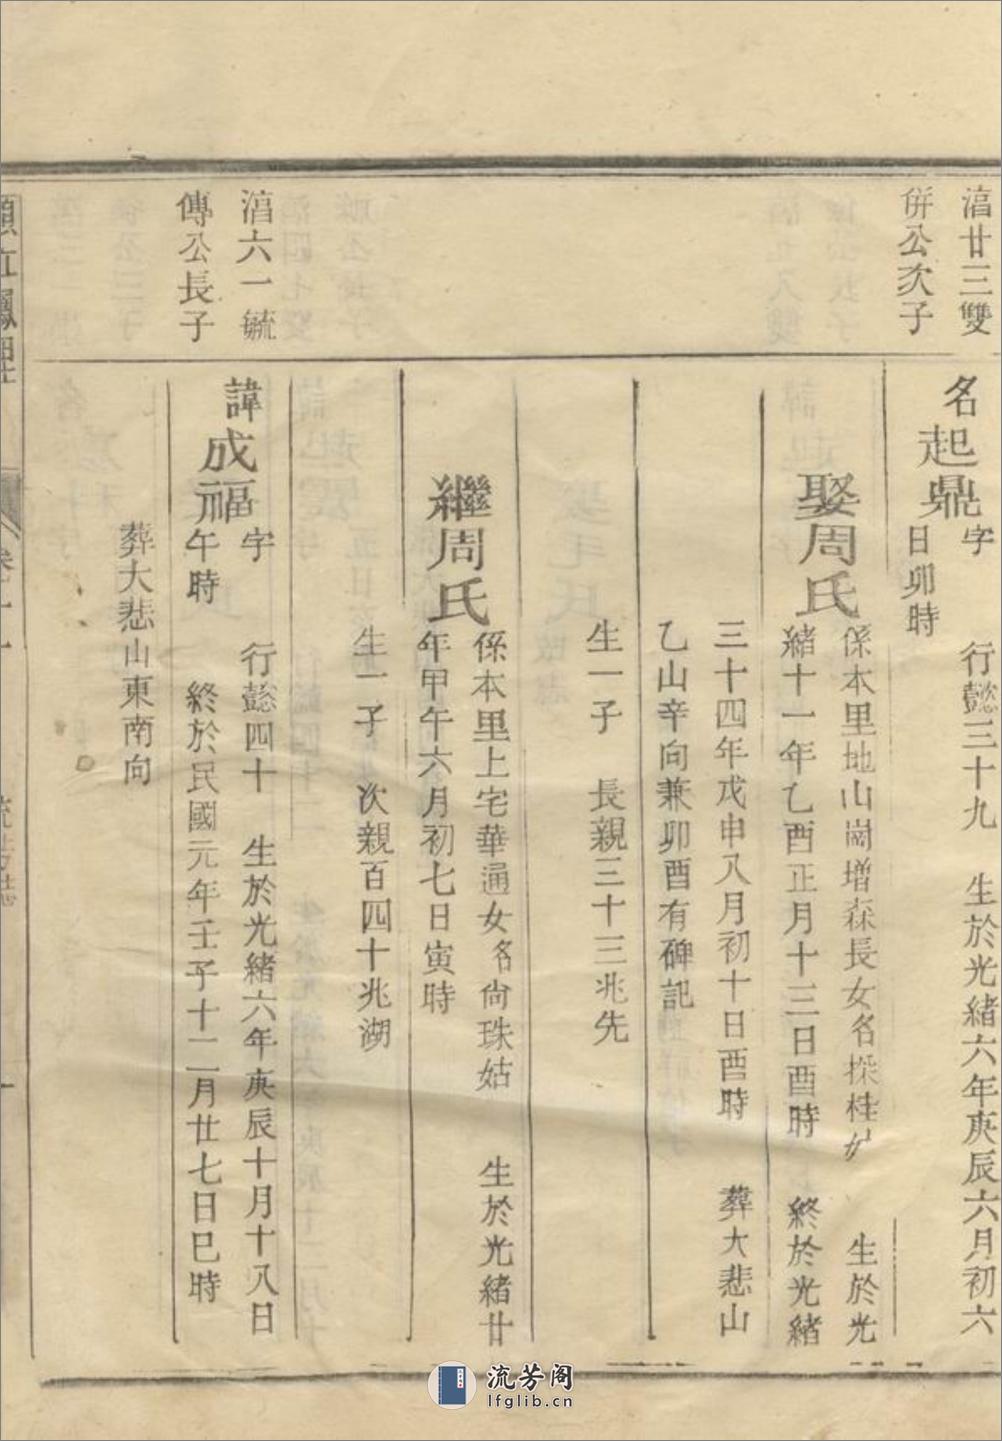 㵮廿三雙
併公次子
名起鼎
字 行懿三十九 生於光緒六年庚辰六月初六
日卯時
娶周氏
係本里地山崗增森長女名採桂 生於光
緒十一年乙酉正月十三日酉時 終於光緒
三十四年戊申八月初十日酉時 葬大悲山
乙山辛向兼卯酉有碑記
生一子 長親三十三兆先
繼周氏
係本里上宅華通女名尙珠姑 生於光緒廿
年甲午六月初七日寅時
生一子 次親百四十兆湖
六一毓
傳公長子
諱成福
字 行懿四十 生於光緒六年庚辰十月十八日
午時 終於民國元年壬子十二月廿七日巳時
葬大悲山東南向
流芳阁
lfglib.cn